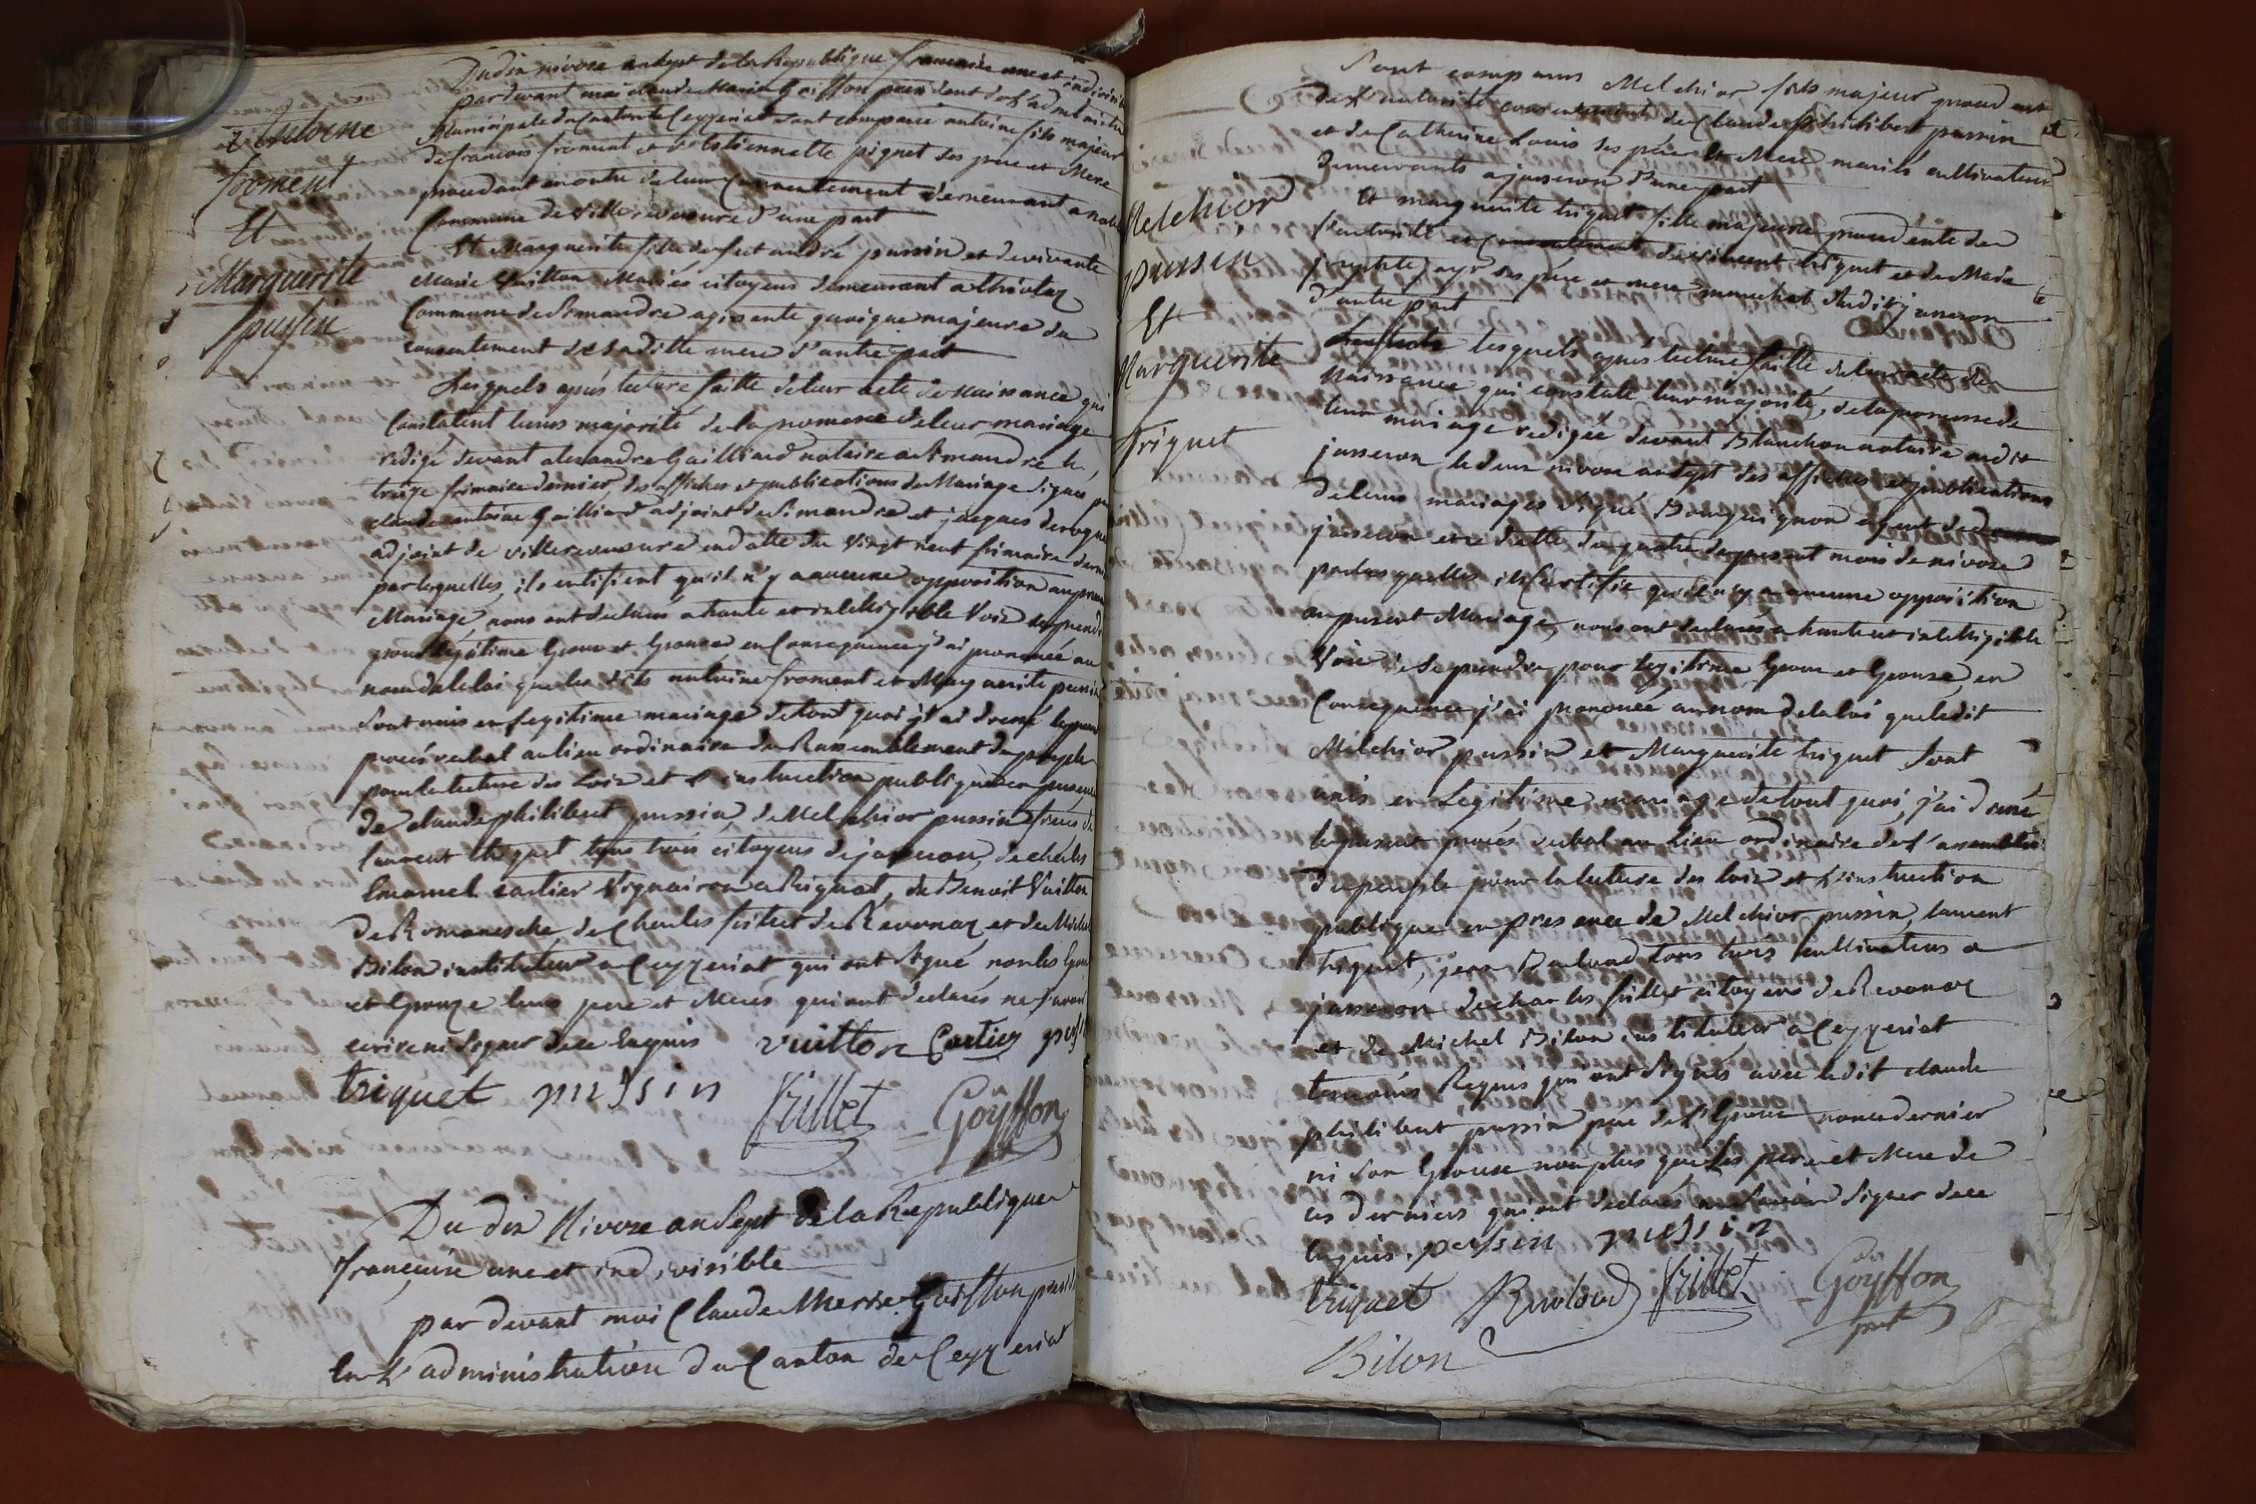 Du dix nivose an sept de la Republique francaise une et indivisible
par devant moi claude Marie Goiffon president de l'administration
Municipale du Canton de Ceyzeriat sont comparus antoine fils majeur
de francois froment et d'Estiennette piquet ses pere et Mere
procedant en outre de leur Consentement demeurant a
Commune de Villereversure d'une part
Et Marguerite fille de feu andré pussin et de vivante
Marie Vuitton Mariés citoyens demeurant a thiolaz
Commune de Simandre agissante quoique majeure du
consentement de sa ditte mere d'autre part
Antoine
froment
Et
Marguerite
pussin
Lesquels après lecture faitte de leur acte de Naissance qui
Constatent leurs majorité de la promesse de leur mariage
redigé devant alexandre Gailliard notaire a Simandre le
treize frimaire dernier, des affiches et publications de Mariage signés par
claude antoine Gailliard adjoint de Simandre et jacques
adjoint de villereversure en datte du Vingt neuf frimaire dernier
par lesquelles, ils certifient qu'il n'y a aucune opposition au present
Mariage nous ont declarés a haute et intelligible Voix se prendre
pour légitime Epoux et Epouse en Consequence j'ai prononcé au
nom de la loi que les dits antoine froment et Marguerite pussin
sont unis en legitime mariage de tout quoi j'ai dressé le present
procés verbal au lieu ordinaire du Rassemblement du peuple
pour la lecture des Loix et l'instruction publique en presence
de claude philibert pussin, de Melchior pussin freres de
laurent triquet, tous trois citoyens de jasseron, de charles
Emanuel cartier Vigneron a Rignat, de Benoit Vuitton
de Romanesche, de Charles frillet de Revonaz et de Michel
Bilon instituteur a Ceyzeriat, qui ont signé non les Epoux
et Epouze leurs pere et Meres qui ont declarés ne savoir
ecrire ni signer de ce Enquis vuitton Cartier pussin
triquet pussin frillet Goÿffon
Du dix Nivose an Sept de la Republique
françaisse une et indivisible
par devant moi Claude Merie Goiffon presid
en L'administration du Canton de Ceyzeriat
Sont comparus Melchior fils majeur procedant
de l'autorité et consentement de Claude philibert pussin
et de Catherine Louis ses père et Mere mariés cultivateurs
demeurants a jasseron d'une part
Et marguerite triquet fille majeure procedente de
l'autorité et consentement de Laurent triquet et de Marie
ses père et mere marechal audit jasseron
d'autre part
Melchior
pussin
Et
Marguerite
triquet
lesquels après lecture faitte de leur acte de
Naissance qui constate leur majorité, de la promesse de
leur mariage redigée devant Blanchon notaire audit
jasseron le deux nivose an sept des affiches et publications
de leurs mariages signé Bourguignon agent de
jasseron en datte du quatre du present mois de nivose
par lesquelles il Certifie qu'il n'y a aucune opposition
au present Mariage, nous ont declarés a haute et intelligible
Voix de se prendre pour legitime Epoux et Epouse, en
Consequence j'ai prononcé au nom de la loi que ledit
Melchior pussin et Marguerite triquet sont
unis en Legitime mariage de tout quoi, j'ai dressé
le present procès verbal au lieu ordinaire de l'assemblée
du peuple pour la lecture des loix et l'instruction
publique en presence de Melchior pussin, laurent
triquet, jean tous trois cultivateurs a
jasseron de charles frillet citoyens de Revonaz
et de Michel Bilon instituteur a Ceyzeriat
temoins Requis qui ont signés avec ledit claude
philibert pussin père de l'Epoux non ce dernier
ni son Epouse non plus que les pere et Mere de
ces derniers qui ont declarés ne savoir signer de ce
Enquis. pussin pussin
triquet frillet Goÿffon
prdt
Bilon